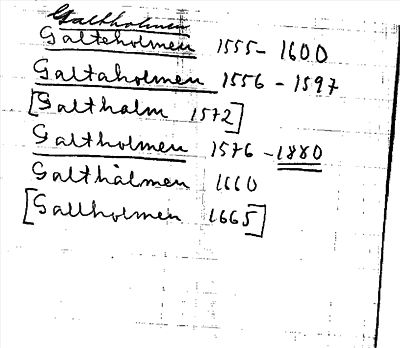 Galtholmen
Galteholmen 1555 - 1600
Galtaholmen 1556 - 1597
[Galthalm 1572]
Galtholmen 1576 - 1880
Galthålmen 1660
[Gallholmen 1665]